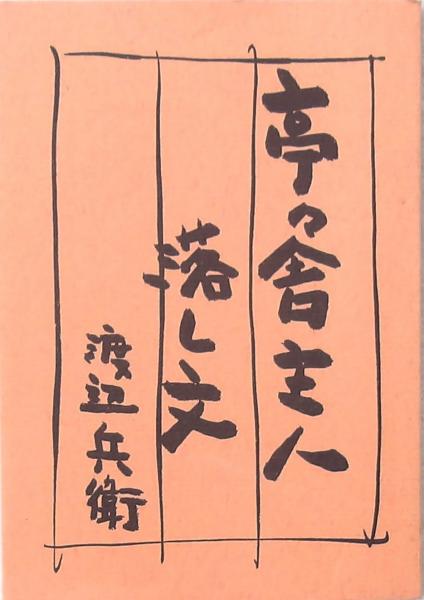 亭々舎主人
落し文
渡辺兵衛